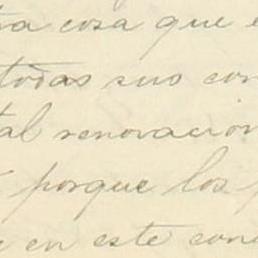 cosa que
todas sus con
tal renovacion
porque los
en este conc